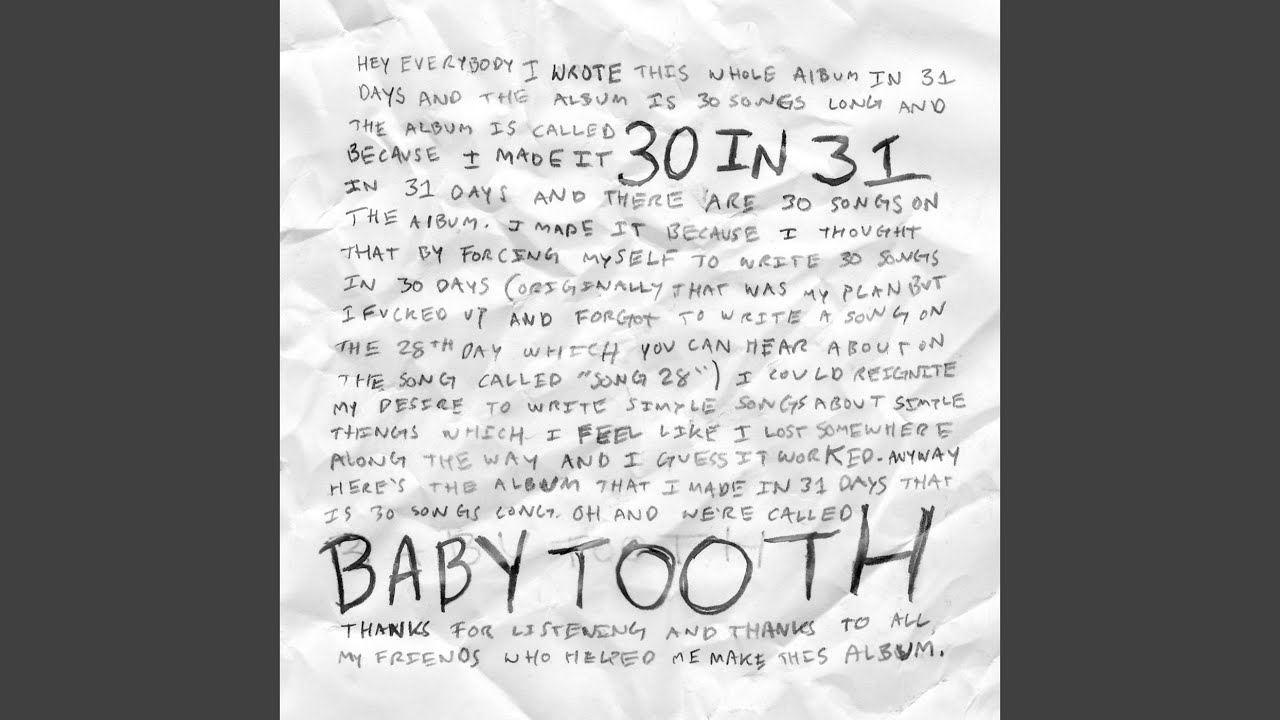 HEY EVERYBODY I WROTE THIS WHOLE ALBUM IN 31
DAYS AND THE ALBUM IS 30 SONGS LONG AND
THE ALBUM IS CALLED
BECAUSE I MADE IT 30 IN 31
IN 31 DAYS AND THERE ARE 30 SONGS ON
THE ALBUM. I MADE IT BECAUSE I THOUGHT
THAT BY FORCING MYSELF TO WRITE 30 SONGS
IN 30 DAYS (ORIGINALLY THAT WAS MY PLAN BUT
I FUCKED UP AND FORGOT TO WRITE A SONG ON
THE 28TH DAY WHICH YOU CAN HEAR ABOUT ON
THE SONG CALLED "SONG 28") I COULD REIGNITE
MY DESIRE TO WRITE SIMPLE SONGS ABOUT SIMPLE
THINGS WHICH I FEEL LIKE I LOST SOMEWHERE
ALONG THE WAY AND I GUESS IT WORKED. ANYWAY
HERE'S THE ALBUM THAT I MADE IN 31 DAYS THAT
IS 30 SONGS LONG. OH AND WE'RE CALLED
BABY TOOTH
THANKS FOR LISTENING AND THANKS TO ALL
MY FRIENDS WHO HELPED ME MAKE THIS ALBUM.